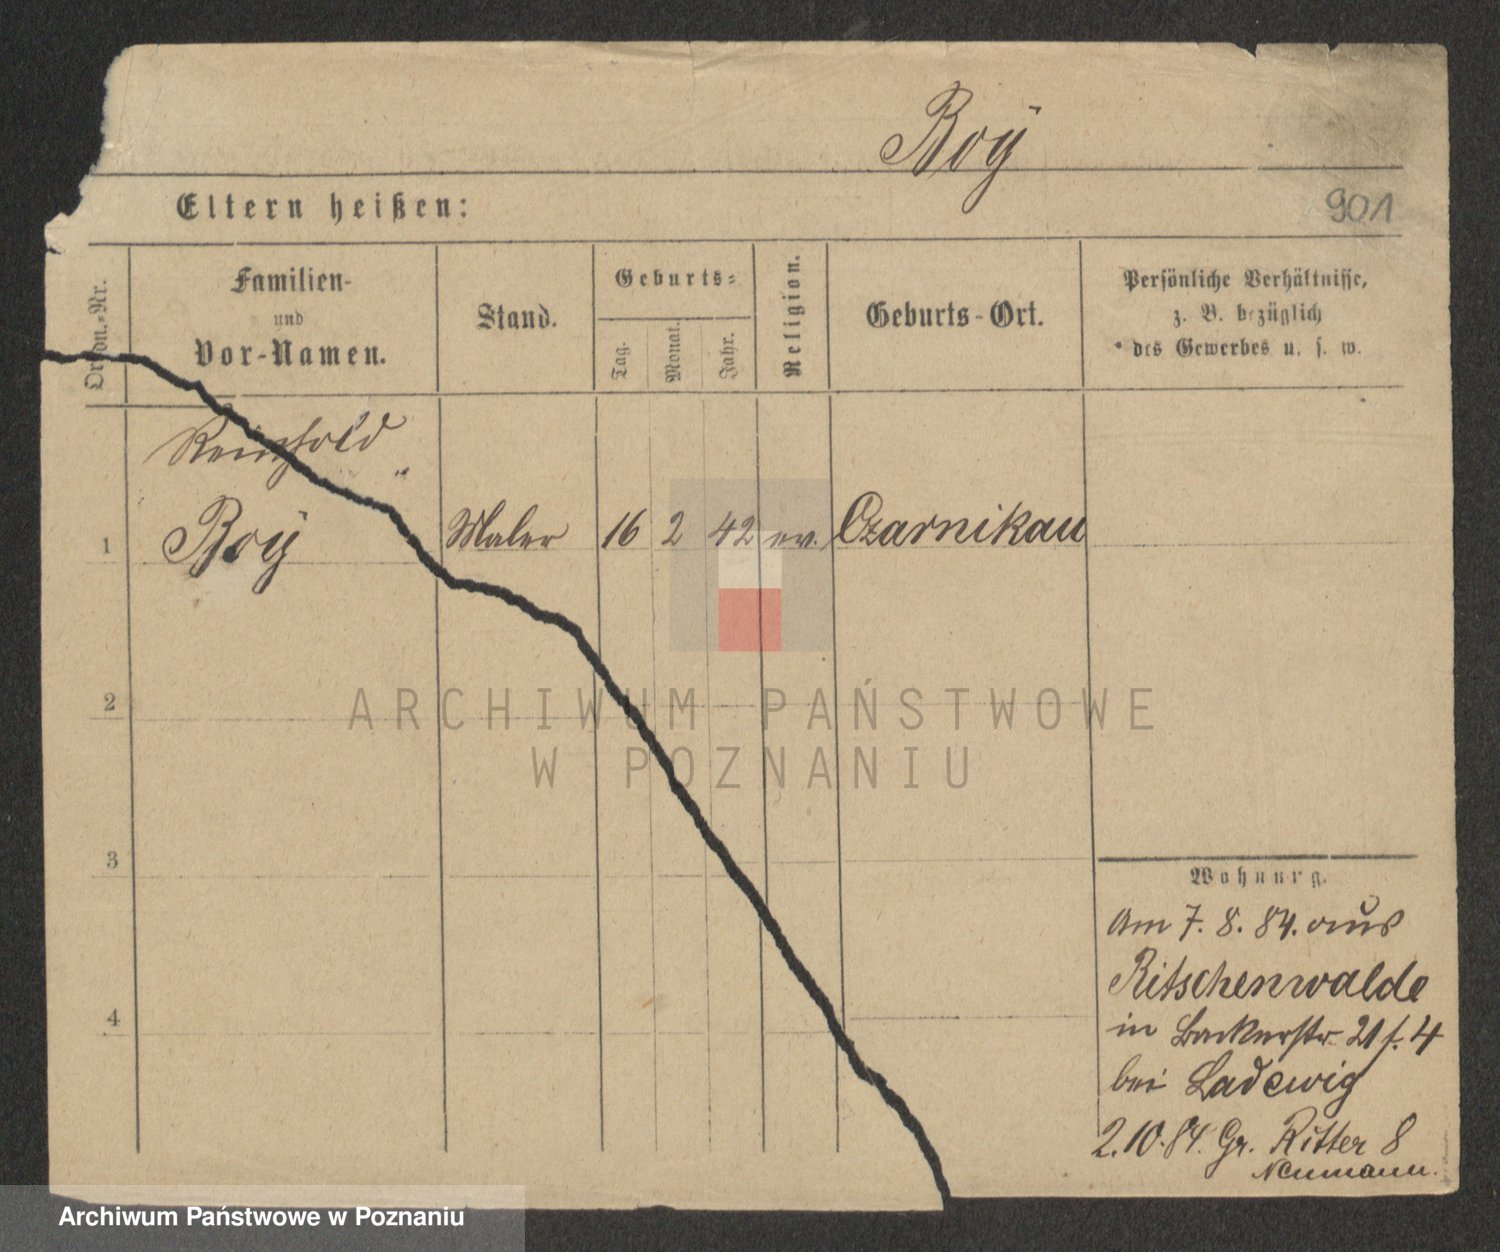 Roÿ
Eltern heißen:
901
Ordn.-Nr.
Familien-
und
Vor-Namen.
Stand.
Geburts-
Tag.
Monat.
Jahr.
Religion.
Geburts-Ort.
Persönliche Verhältnisse,
z. B. bezüglich
des Gewerbes u. s. w.
Reinhold
1 Roÿ Maler 16 2 42 ev. Czarnikau
2
3
4
ARCHIWUM PAŃSTWOWE
W POZNANIU
Wohnung.
Am 7. 8. 84. aus
Ritschenwalde
in Bäckerstr. 21 f. 4
bei Ladewig
2.10.84. Gr. Ritter 8
Neumann.
Archiwum Państwowe w Poznaniu